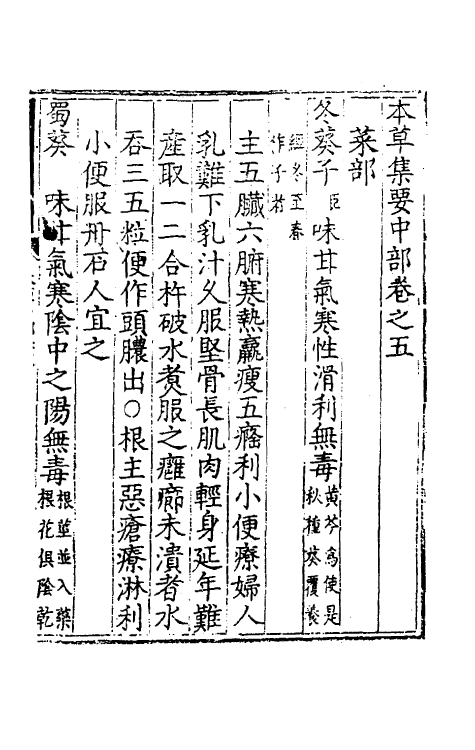 本草集要中部卷之五
菜部
冬葵子 臣 味甘氣寒性滑利無毒 黃芩為使是秋種葵覆養
經冬至春作子者
主五臟六腑寒熱羸瘦五癃利小便療婦人
乳難下乳汁久服堅骨長肌肉輕身延年難
產取一二合杵破水煑服之癰癤未潰者水
吞三五粒便作頭膿出○根主惡瘡療淋利
小便服丹石人宜之
蜀葵 味甘氣寒陰中之陽無毒 根莖並入藥根花俱陰乾